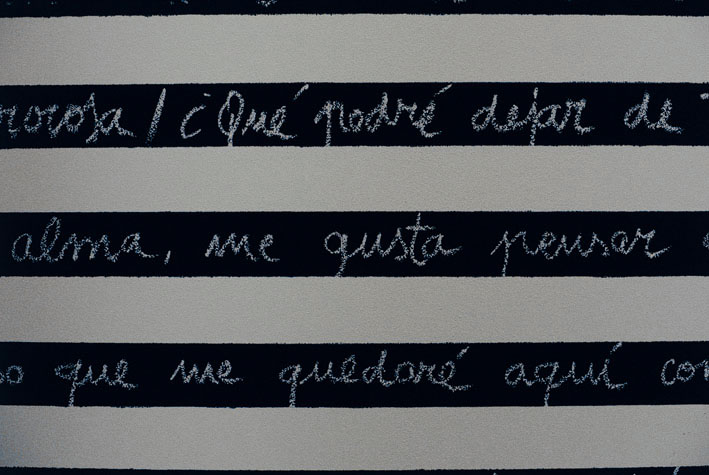 rorosa / ¿Qué podré dejar de
alma, me gusta pensar
o que me quedaré aquí con